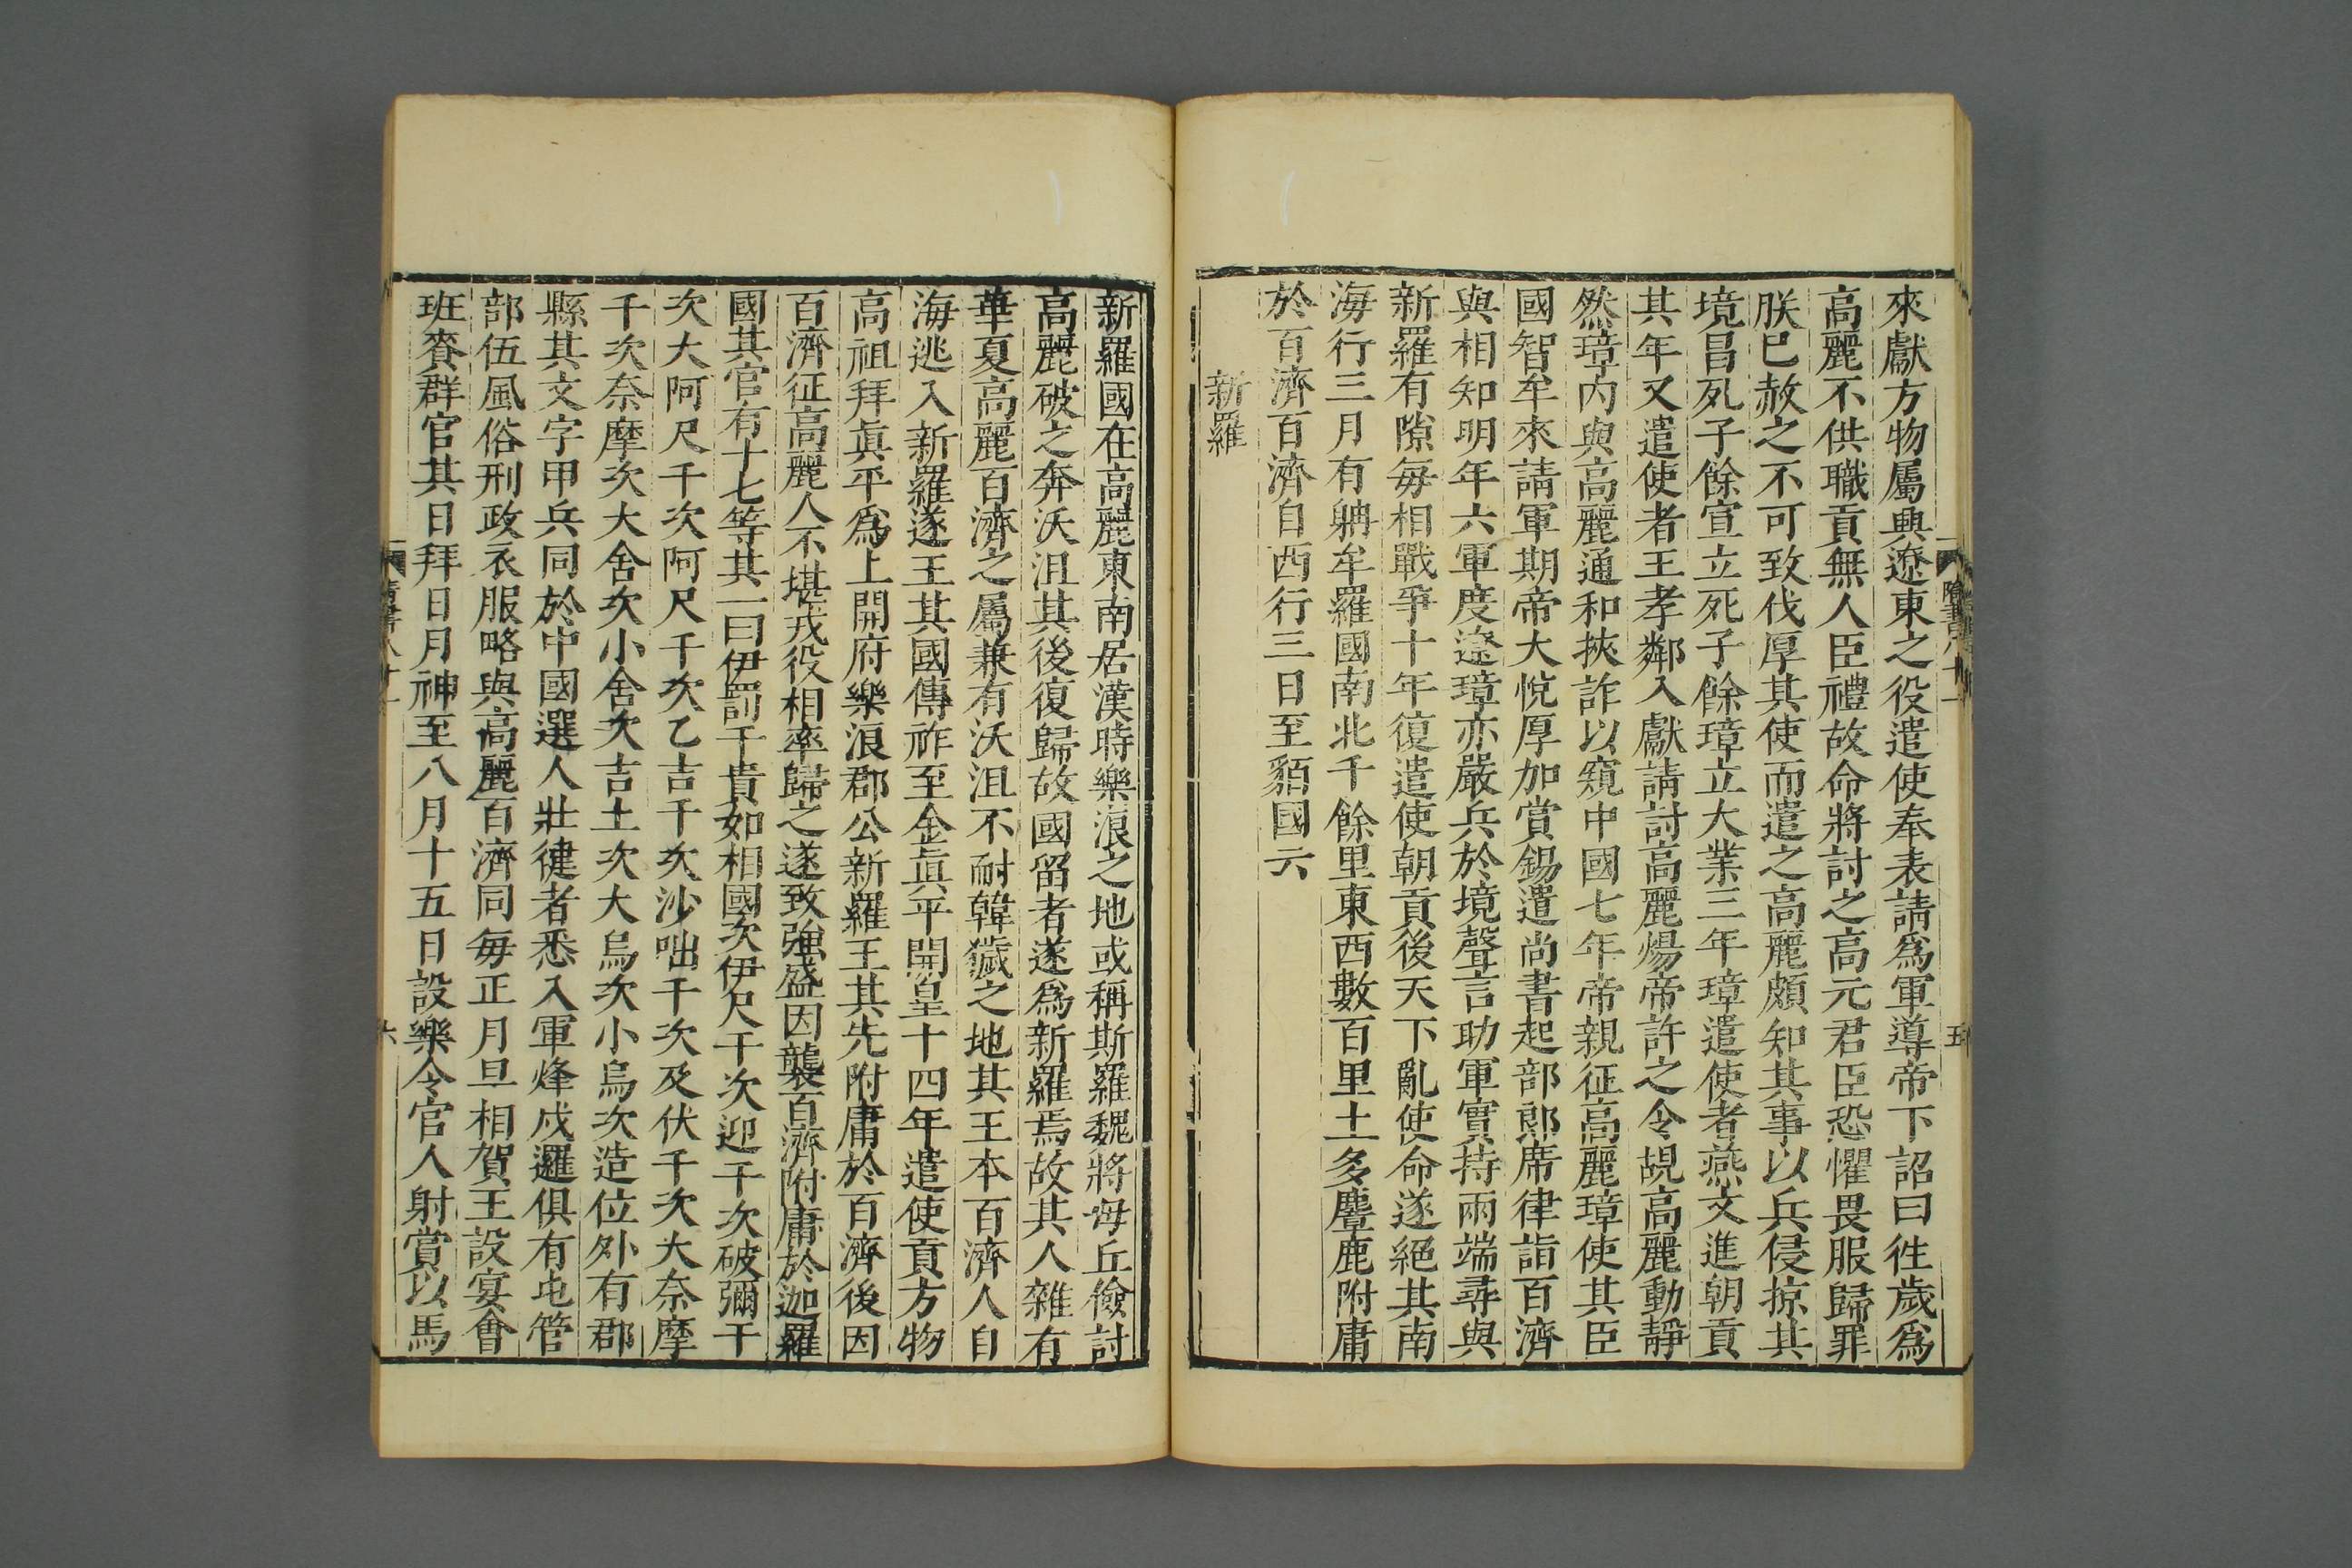 來獻方物屬興遼東之役遣使奉表請爲軍導帝下詔曰徃歲爲
高麗不供職貢無人臣禮故命將討之高元君臣恐懼畏服歸罪
朕已赦之不可致伐厚其使而遣之高麗頗知其事以兵侵掠其
境昌死子餘宣立死子餘璋立大業三年璋遣使者燕文進朝貢
其年又遣使者王孝鄰入獻請討高麗煬帝許之令覘高麗動靜
然璋内與高麗通和挾詐以窺中國七年帝親征高麗璋使其臣
國智牟來請軍期帝大悅厚加賞錫遣尚書起部郎席律詣百濟
與相知明年六軍度遼璋亦嚴兵於境聲言助軍實持兩端尋與
新羅有隙毎相戰爭十年復遣使朝貢後天下亂使命遂絕其南
海行三月有躭牟羅國南北千餘里東西數百里土多麞鹿附庸
於百濟百濟自西行三日至貊國云
新羅
隋書八十一
五
新羅國在高麗東南居漢時樂浪之地或稱斯羅魏將毋丘儉討
高麗破之奔沃沮其後復歸故國留者遂爲新羅焉故其人雜有
華夏高麗百濟之屬兼有沃沮不耐韓獩之地其王本百濟人自
海逃入新羅遂王其國傳祚至金眞平開皇十四年遣使貢方物
高祖拜眞平爲上開府樂浪郡公新羅王其先附庸於百濟後因
百濟征高麗人不堪戎役相率歸之遂致強盛因襲百濟附庸於迦羅
國其官有十七等其一曰伊罰干貴如相國次伊尺干次迎干次破彌干
次大阿尺干次阿尺干次乙吉干次沙咄干次及伏干次大奈摩
干次奈摩次大舍次小舍次吉土次大烏次小烏次造位外有郡
縣其文字甲兵同於中國選人壯健者悉入軍烽戍邏俱有屯管
部伍風俗刑政衣服略與高麗百濟同毎正月旦相賀王設宴會
班賚群官其日拜日月神至八月十五日設樂令官人射賞以馬
隋書八十一
六